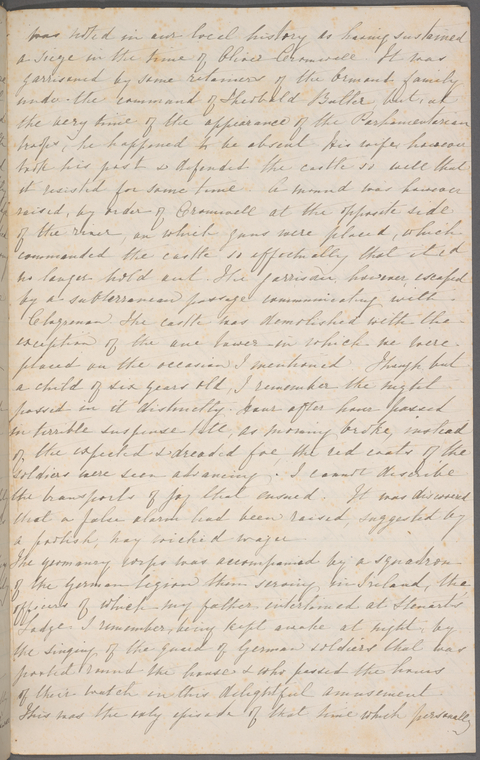 was noted in our local history as having sustained
a seige in the time of Oliver Cromwell It was
garrisoned by some retainers of the Ormond family
under the command of Theobald Butler, but, at
the very time of the appearance of the Parliamentarian
troops, he happened to be absent His wife however
took his post & defended the castle so well that
it resisted for some time. A mound was however
raised, by order of Cromwell at the opposite side
of the river, on which guns were placed, which
commanded the castle so effectually that it cd
no longer hold out. The garrison, however, escaped
by a subterranean passage communicating with
The castle was demolished with the
exception of the one tower in which we were
placed on the occasion I mentioned. Though but
a child of six years old, I remember the night
passed in it distinctly. Hour after hour passed
in terrible suspense till, as morning broke, instead
of the expected & dreaded foe the red coats of the
soldiers were seen advancing. I cannot describe
the transports of joy that ensued. It was discovered
that a false alarm had been raised, suggested by
a foolish, nay wicked wager
The yeomanry corps was accompanied by a squadron
of the German legion then serving in Ireland, the
officers of which my father entertained at Stewart's
Lodge. I remember being kept awake at night, by
the singing of the guard of German soldiers that was
posted round the house & who passed the hours
of their watch in this delightful amusement
This was the only episode of that time which personally